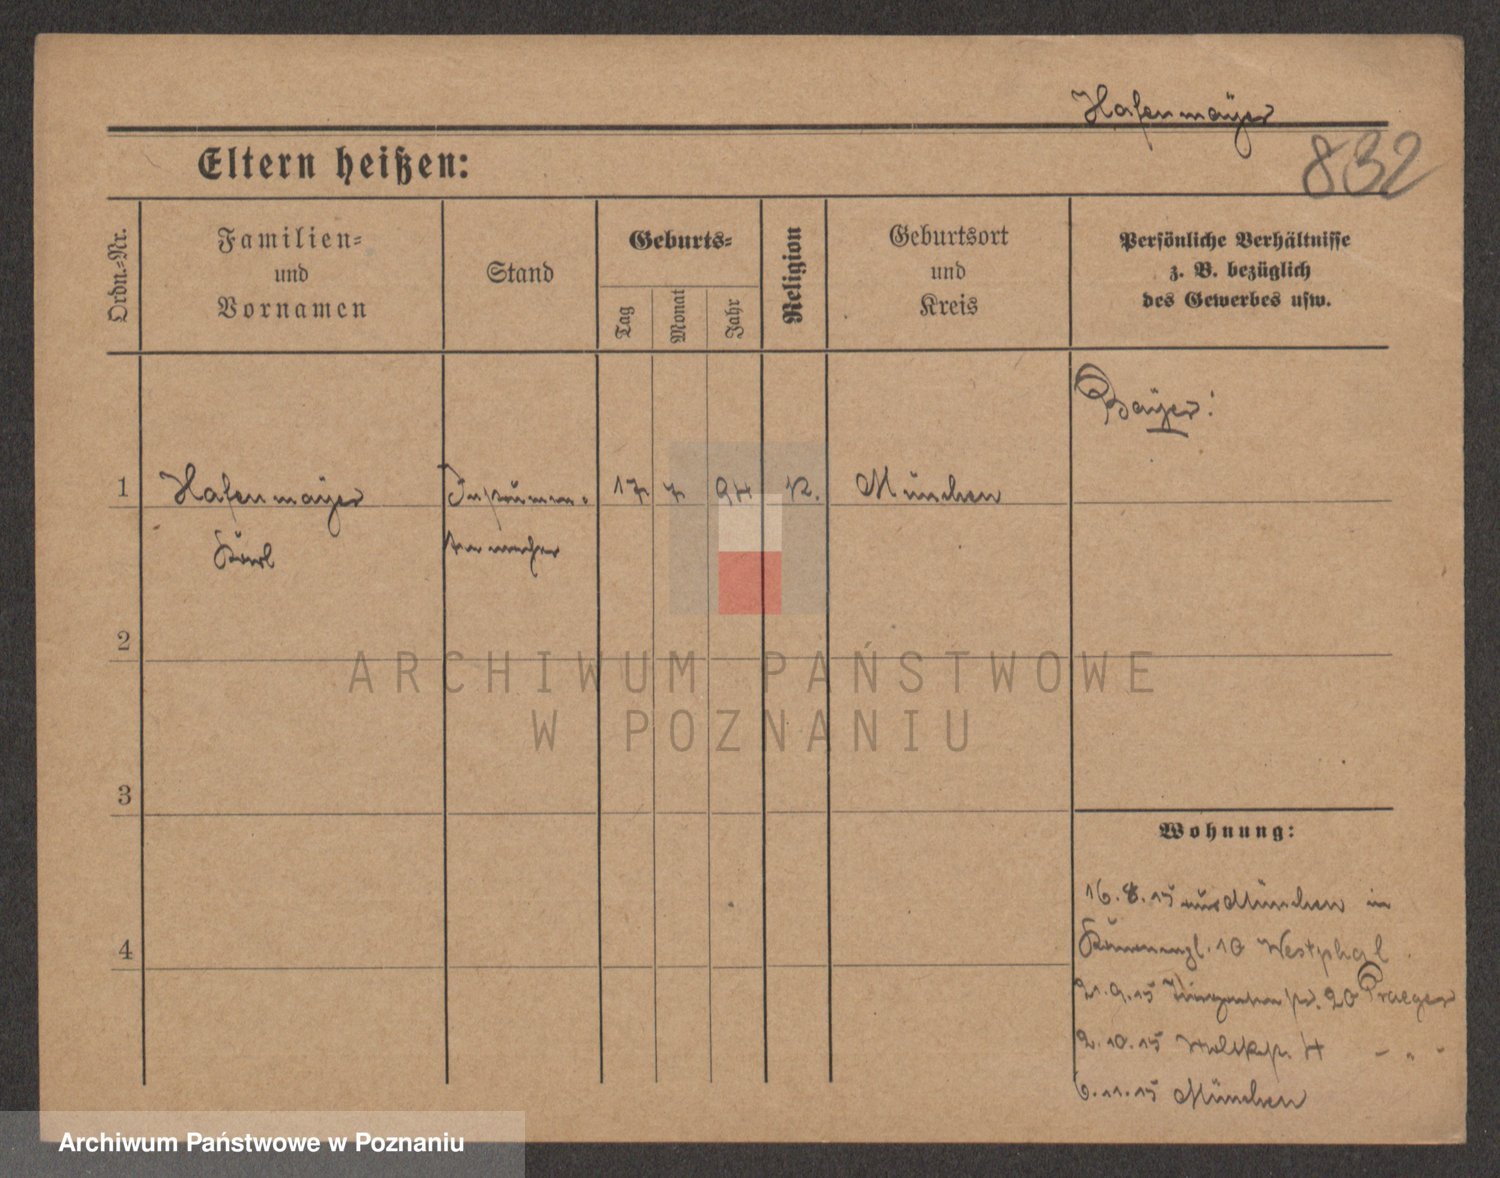 Hafenmayer
832
Eltern heißen:
Ordn.-Nr.
Familien-
und
Vornamen
Stand
Geburts-
Tag
Monat
Jahr
Religion
Geburtsort
und
Kreis
Persönliche Verhältnisse
z. B. bezüglich
des Gewerbes usw.
Bayer!
1
Hafenmayer
Instrumen-
17
7
94
K.
München
Karl
tenmacher
2
ARCHIWUM PAŃSTWOWE
W POZNANIU
3
Wohnung:
16.8.15 aus München in
10 Westphal
4
21.9.15 20 Praeger
2.10.15 4 - " -
6.11.15 München
Archiwum Państwowe w Poznaniu